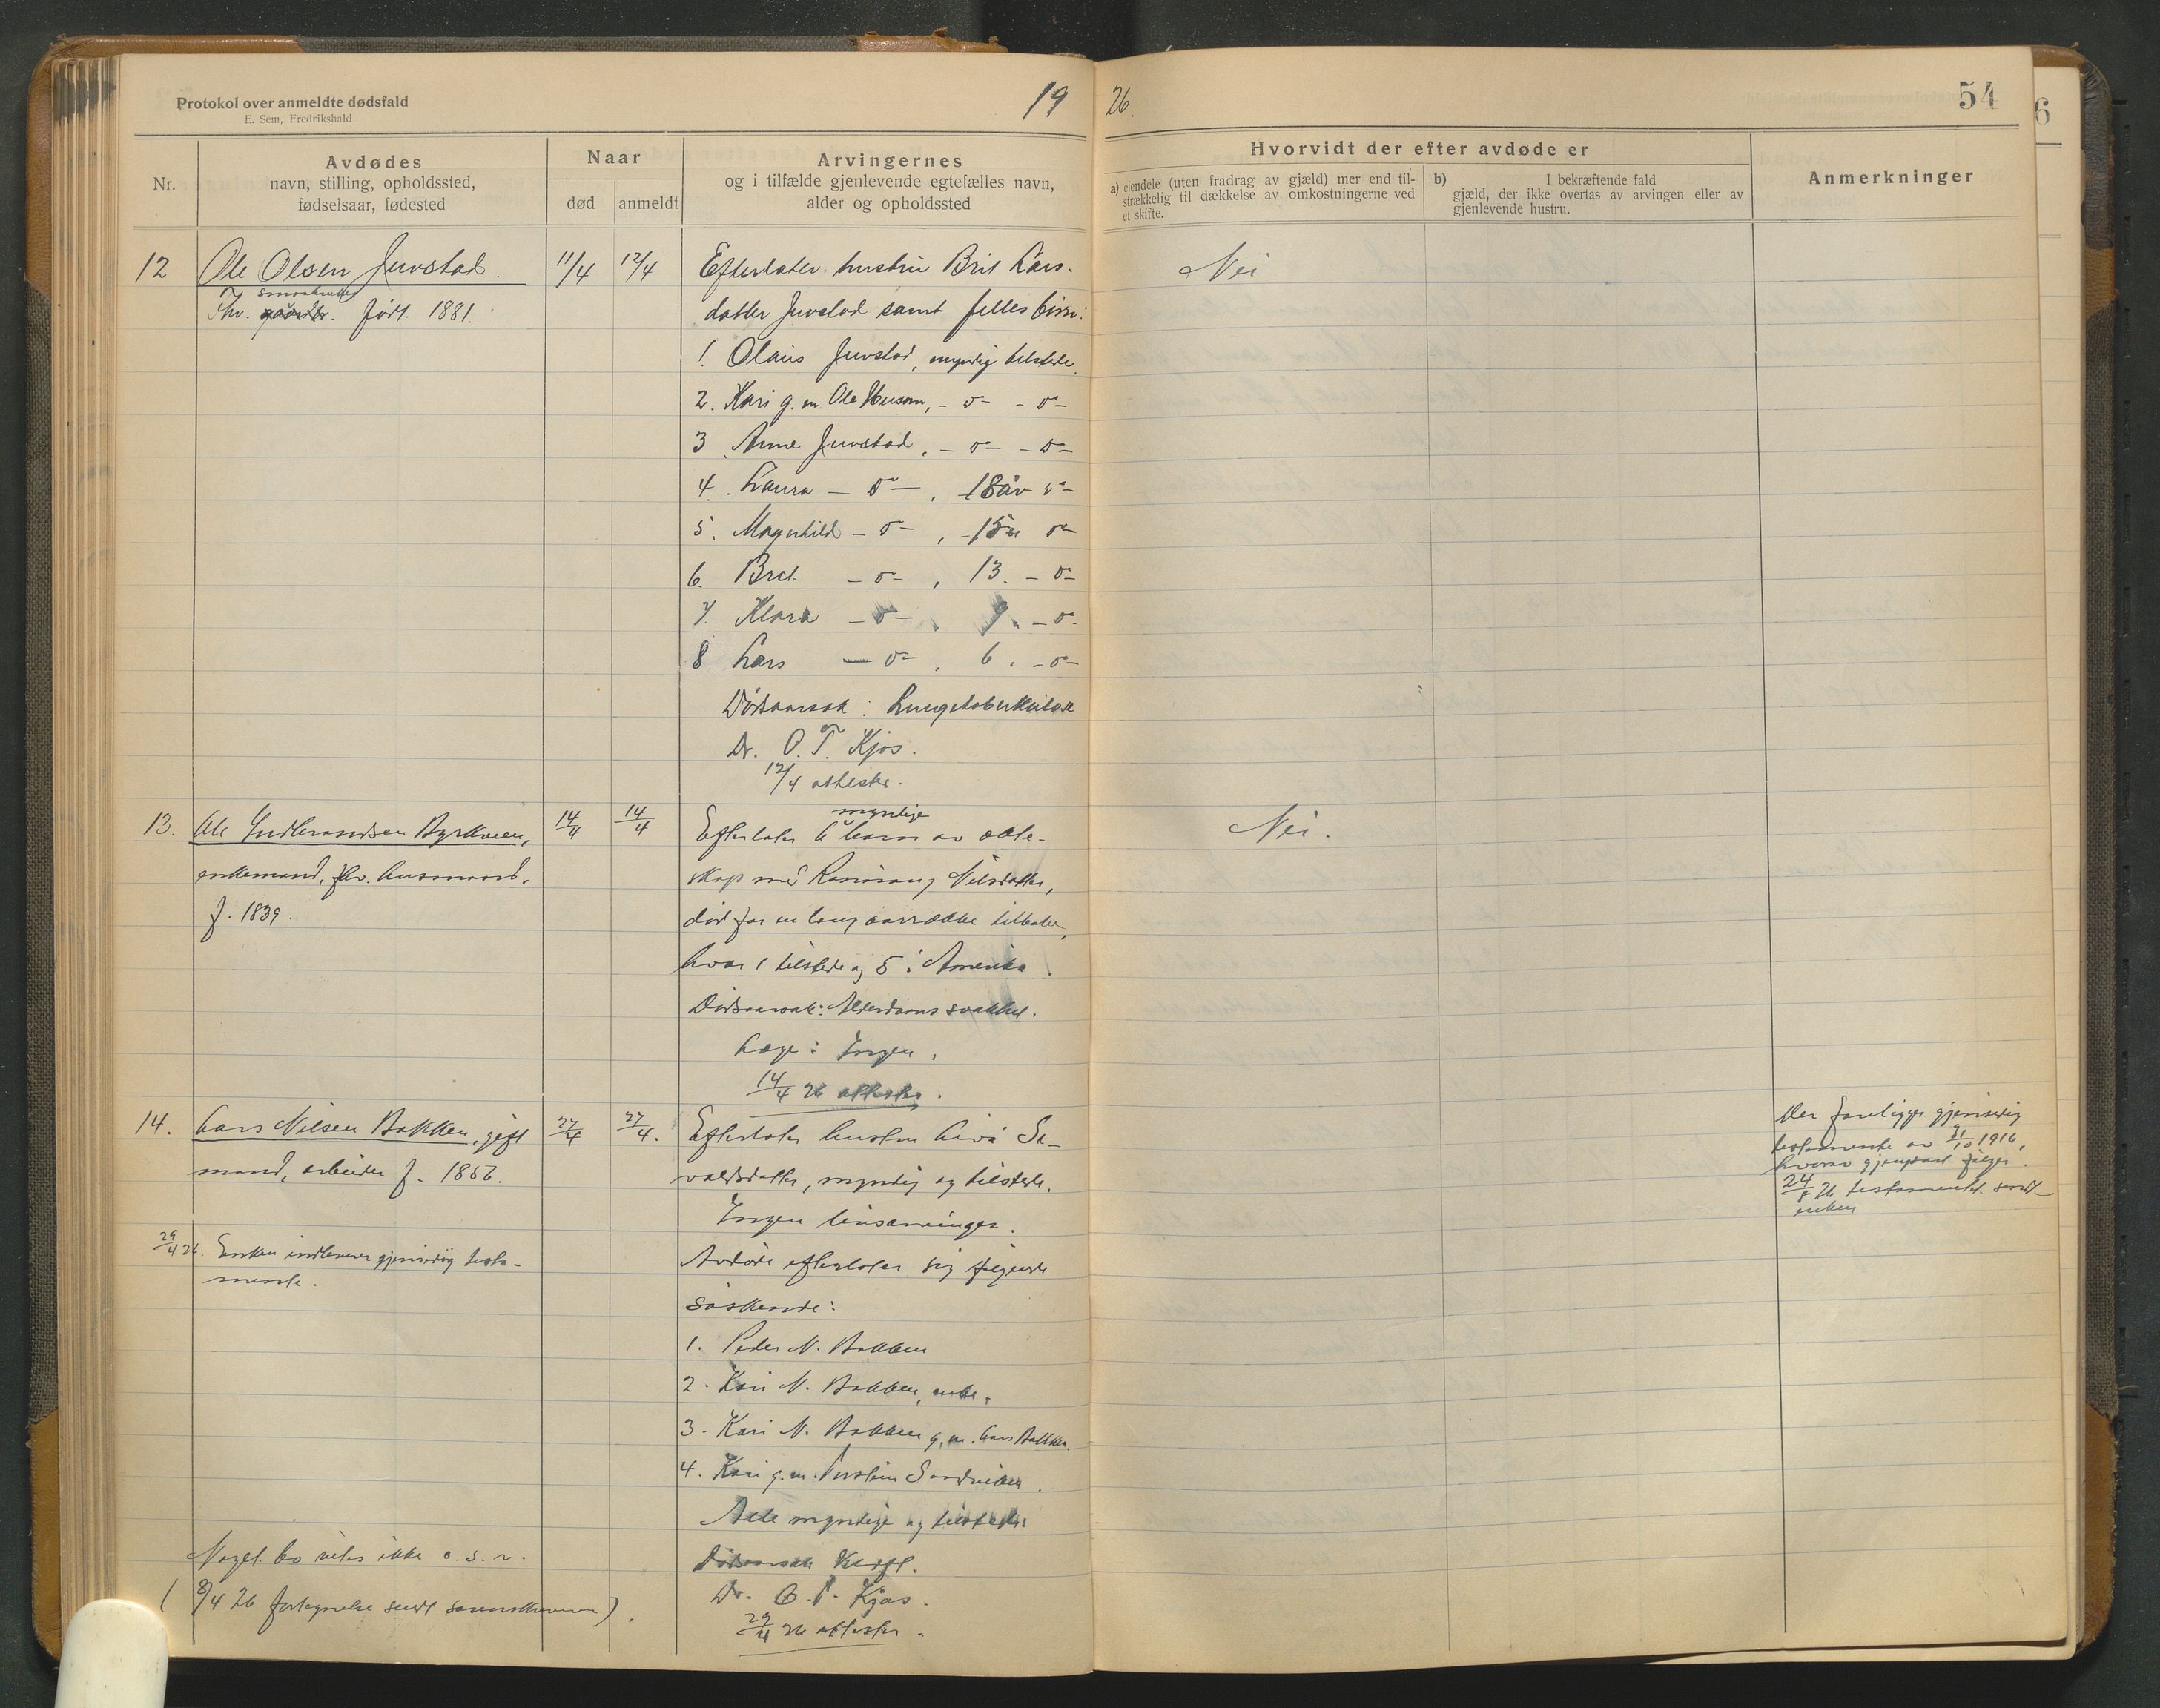 Protokol over anmeldte dødsfald
E. Sem, Fredrikshald
19
26.
54
6
Nr.
Avdødes
navn, stilling, opholdssted,
fødselsaar, fødested
Naar
død
anmeldt
Arvingernes
og i tilfælde gjenlevende egtefælles navn,
alder og opholdssted
Hvorvidt der efter avdøde er
a) eiendele (uten fradrag av gjæld) mer end til-
strækkelig til dækkelse av omkostningerne ved
et skifte.
b) I bekræftende fald
gjæld, der ikke overtas av arvingen eller av
gjenlevende hustru.
Anmerkninger
12
Ole Olsen Juvstad.
smaabruker
fhv. født 1881.
11/4
12/4
Efterlater hustru Brit Lars-
datter Juvstad samt felles børn:
1. Olaus Juvstad, myndig tilstede.
2. Kari g. m. Ole Husom, - o - - o -
3. Anne Juvstad, - o - - o -
4. Laura - o -, 18 år o -
5. Magnhild - o -, 15 o -
6. Brit - o -, 13. - o -
7. Klara - o -, 9. - o -
8 Lars - o -, 6. - o -
Dødsaarsak: Lungetuberkulose
Dr. O. T. Kjos.
12/4 attester.
Nei
13.
Ole Gudbrandsen Byrkveen,
enkemand, fhv. husmand,
f. 1839.
14/4
14/4
myndige
Efterlater 6 barn av ekte-
skap med Rønnaug Nilsdatter,
død for en lang aarrække tilbake,
hvor 1 tilstede og 5 i Amerika.
Dødsaarsak: Alderdoms svakhet.
Læge: Ingen.
14/4 26 attester.
Nei.
14.
Lars Nilsen Bakken, gift
mand, arbeider f. 1856.
27/4
27/4.
Efterlater hustru Livå Se-
valdsdatter, myndig og tilstede.
Ingen livsarvinger.
Avdøde efterlater sig følgende
søskende:
1. Peder N. Bakken
2. Kari N. Bakken, enke.
3. Kari N. Bakken g. m. Lars Bakken.
4. Kari g. m. Torstein Sandviken.
Alle myndige og tilstede
Dødsaarsak Kræft.
Dr. O. T. Kjos.
29/4 26 attester.
Der foreligger gjensidig
testamente av 31/10 1916,
hvorav gjenpart følger.
24/8 26 testamentet sendt
enken
29/4 26. Enken indleverer gjensidig testa-
mente.
Noget bo vites ikke o. s. v.
( 8/4 26 fortegnelse sendt sorenskriveren ).